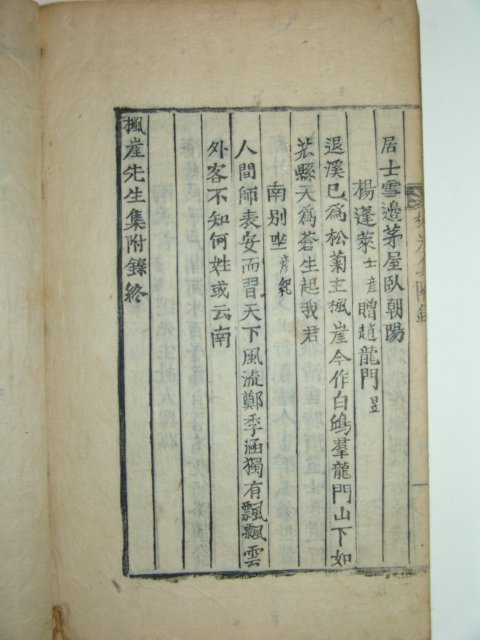 居士雪邊茅屋臥朝陽
楊蓬萊士彦贈趙龍門昱
退溪已爲松菊主楓崖今作白鷗羣龍門山下如
芸縣天爲蒼生起我君
南別坐彦紀
人間師表安而習天下風流鄭季涵獨有飄飄雲
外客不知何姓或云南
楓崖先生集附錄終